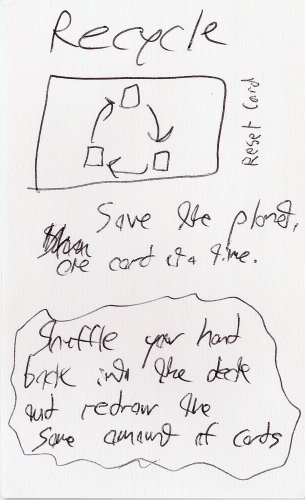 Recycle
Reset Card
Save the planet,
one card at a time.
Shuffle your hand
back into the deck
and redraw the
same amount of cards